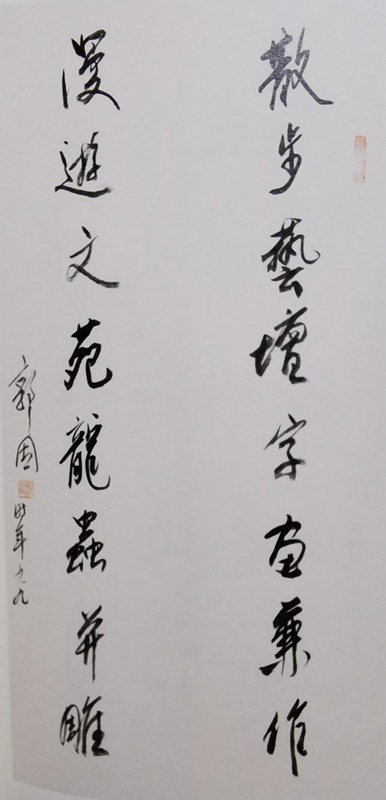 散步藝壇字畫兼作
漫遊文苑龍蟲并雕
郭因
時年九九